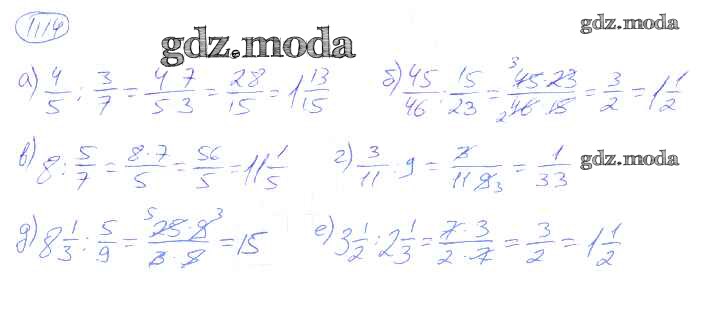 1114
gdz.moda
gdz.moda
а) 4/5 : 3/7 = 4 7/5 3 = 28/15 = 1 13/15 б) 45/46 : 15/23 = 45·23/46·15 = 3/2 = 1 1/2
в) 8 : 5/7 = 8·7/5 = 56/5 = 11 1/5 г) 3/11 : 9 = 3/11 9 = 1/33 gdz.moda
д) 8 1/3 : 5/9 = 25·9/3·5 = 15 е) 3 1/2 : 2 1/3 = 7·3/2·7 = 3/2 = 1 1/2